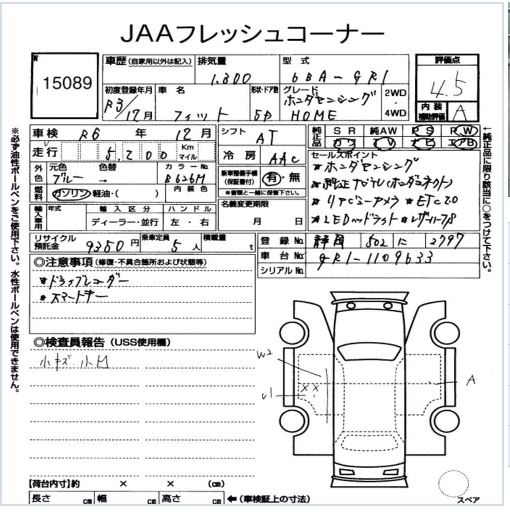 JAAフレッシュコーナー
15089
車歴 (自家用以外は記入) 排気量 型式
1.300 6BA-GR1
評価点
4.5
内装補助評価 A
初度登録年月 車名 形状・ドア数 グレード 2WD・4WD
R3/12月 フィット 5D ホンダセンシング HOME
車検 R6年12月 シフト AT
純正品 SR 純AW PS PW
カワ TV ナビ エアB
走行 5,200 Km マイル 冷房 AAC
セールスポイント
*ホンダセンシング
*純正ナビTV(ホンダコネクト)
*リアビューカメラ *ETC2.0
*LEDヘッドライト
外色 元色 色替 カラーNo.
ブルー → B626M
燃料 ガソリン・軽油・( ) 内装色
新車整備手帳(保証書付) 有・無
※書類と一緒に保管下さい。
輸入車用 年式 輸入区分 ハンドル
ディーラー・並行 左・右
名義変更期限
月 日
リサイクル預託金 9350円 乗車定員 5人 積載量 t
登録No. 静岡 502 に 2797
車台No. GR1-1109633
シリアルNo.
◎注意事項 (修復・不具合箇所および状態等)
*ドラッグレコーダー
*スマートキー
◎検査員報告 (USS使用欄)
小キズ 小凹
W2
U1
XX
A
[荷台内寸]約 × × (㎝)
長さ ㎝ 幅 ㎝ 高さ ㎝ ←(車検証上の寸法)
スペア
※必ず油性ボールペンをご使用下さい。水性ボールペンは使用できません。
↑純正品に限り該当に○をつけて下さい。